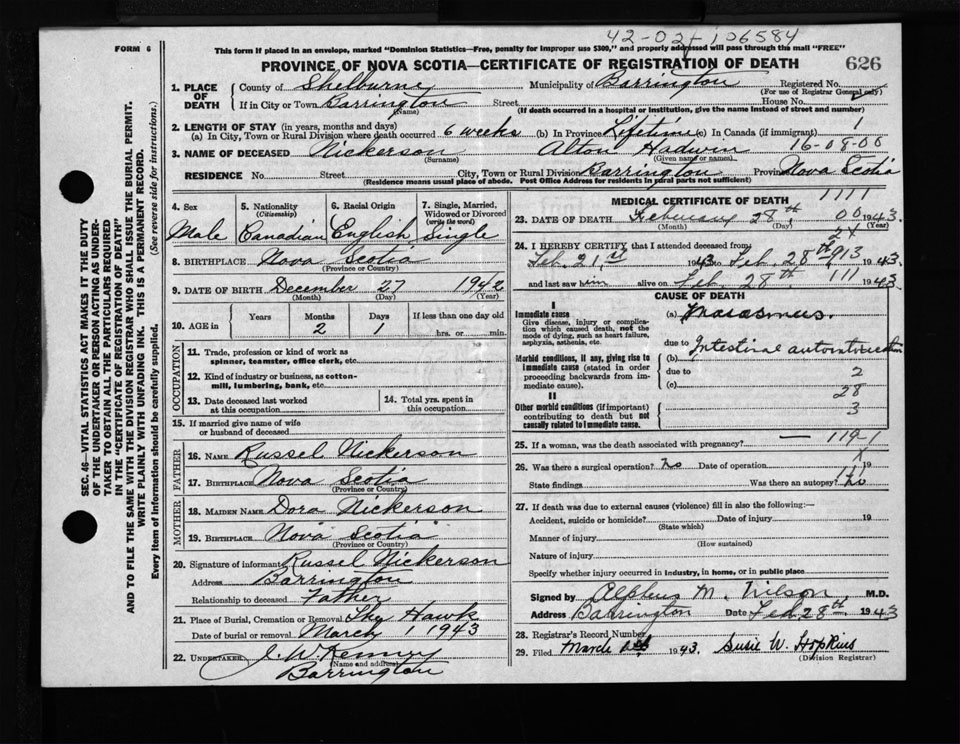 42-02-106584
FORM 6
This form if placed in an envelope, marked "Dominion Statistics—Free, penalty for improper use $300," and properly addressed will pass through the mail "FREE"
PROVINCE OF NOVA SCOTIA—CERTIFICATE OF REGISTRATION OF DEATH 626
SEC. 46—VITAL STATISTICS ACT MAKES IT THE DUTY
OF THE UNDERTAKER OR PERSON ACTING AS UNDER-
TAKER TO OBTAIN ALL THE PARTICULARS REQUIRED
IN THE "CERTIFICATE OF REGISTRATION OF DEATH"
AND TO FILE THE SAME WITH THE DIVISION REGISTRAR WHO SHALL ISSUE THE BURIAL PERMIT.
WRITE PLAINLY WITH UNFADING INK. THIS IS A PERMANENT RECORD.
Every item of Information should be carefully supplied. (See reverse side for instructions.)
1. PLACE OF DEATH
County of Shelburne Municipality of Barrington Registered No.
(For use of Registrar General only)
If in City or Town Barrington Street House No.
(Name) (If death occurred in a hospital or institution, give the name instead of street and number)
2. LENGTH OF STAY (in years, months and days)
(a) In City, Town or Rural Division where death occurred 6 weeks (b) In Province Lifetime (c) In Canada (if immigrant) 1
3. NAME OF DECEASED Nickerson Alton Hadwin 16-08-00
(Surname) (Given name or names)
RESIDENCE No. Street City, Town or Rural Division Barrington Province Nova Scotia
(Residence means usual place of abode. Post Office Address for residents in rural parts not sufficient)
4. Sex Male
5. Nationality (Citizenship) Canadian
6. Racial Origin English
7. Single, Married, Widowed or Divorced (write the word) Single
8. BIRTHPLACE Nova Scotia
(Province or Country)
9. DATE OF BIRTH December 27 1942
(Month) (Day) (Year)
10. AGE in Years Months 2 Days 1 If less than one day old hrs. or min.
OCCUPATION
11. Trade, profession or kind of work as spinner, teamster, office clerk, etc.
12. Kind of industry or business, as cotton-mill, lumbering, bank, etc.
13. Date deceased last worked at this occupation
14. Total yrs. spent in this occupation
15. If married give name of wife or husband of deceased
FATHER
16. NAME Russel Nickerson
17. BIRTHPLACE Nova Scotia
(Province or Country)
MOTHER
18. MAIDEN NAME Dora Nickerson
19. BIRTHPLACE Nova Scotia
(Province or Country)
20. Signature of informant Russel Nickerson
Address Barrington
Relationship to deceased Father
21. Place of Burial, Cremation or Removal The Hawk
Date of burial or removal March 1 1943
22. UNDERTAKER J. W. Kenney
(Name and address)
Barrington
MEDICAL CERTIFICATE OF DEATH 1111
23. DATE OF DEATH February 28th 00 1943.
(Month) (Day) (Year)
24. I HEREBY CERTIFY that I attended deceased from
Feb. 21st 1943 to Feb. 28th 1943.
and last saw him alive on Feb. 28th. 111 1943
CAUSE OF DEATH
I
Immediate cause
Give disease, injury or complication which caused death, not the mode of dying, such as heart failure, asphyxia, asthenia, etc.
(a) Marasmus.
due to
Morbid conditions, if any, giving rise to immediate cause (stated in order proceeding backwards from immediate cause).
(b) Intestinal
due to 2
(c)
II
28
Other morbid conditions (if important) contributing to death but not causally related to immediate cause.
3
25. If a woman, was the death associated with pregnancy? —
26. Was there a surgical operation? No Date of operation 19
State findings Was there an autopsy? No
27. If death was due to external causes (violence) fill in also the following:—
Accident, suicide or homicide? Date of injury 19
(State which)
Manner of injury
(How sustained)
Nature of injury
Specify whether injury occurred in industry, in home, or in public place
Signed by Alpheus M. Wilson M.D.
Address Barrington Date Feb. 28th 1943
28. Registrar's Record Number
29. Filed March 1943. Susie W. Hopkins
(Division Registrar)